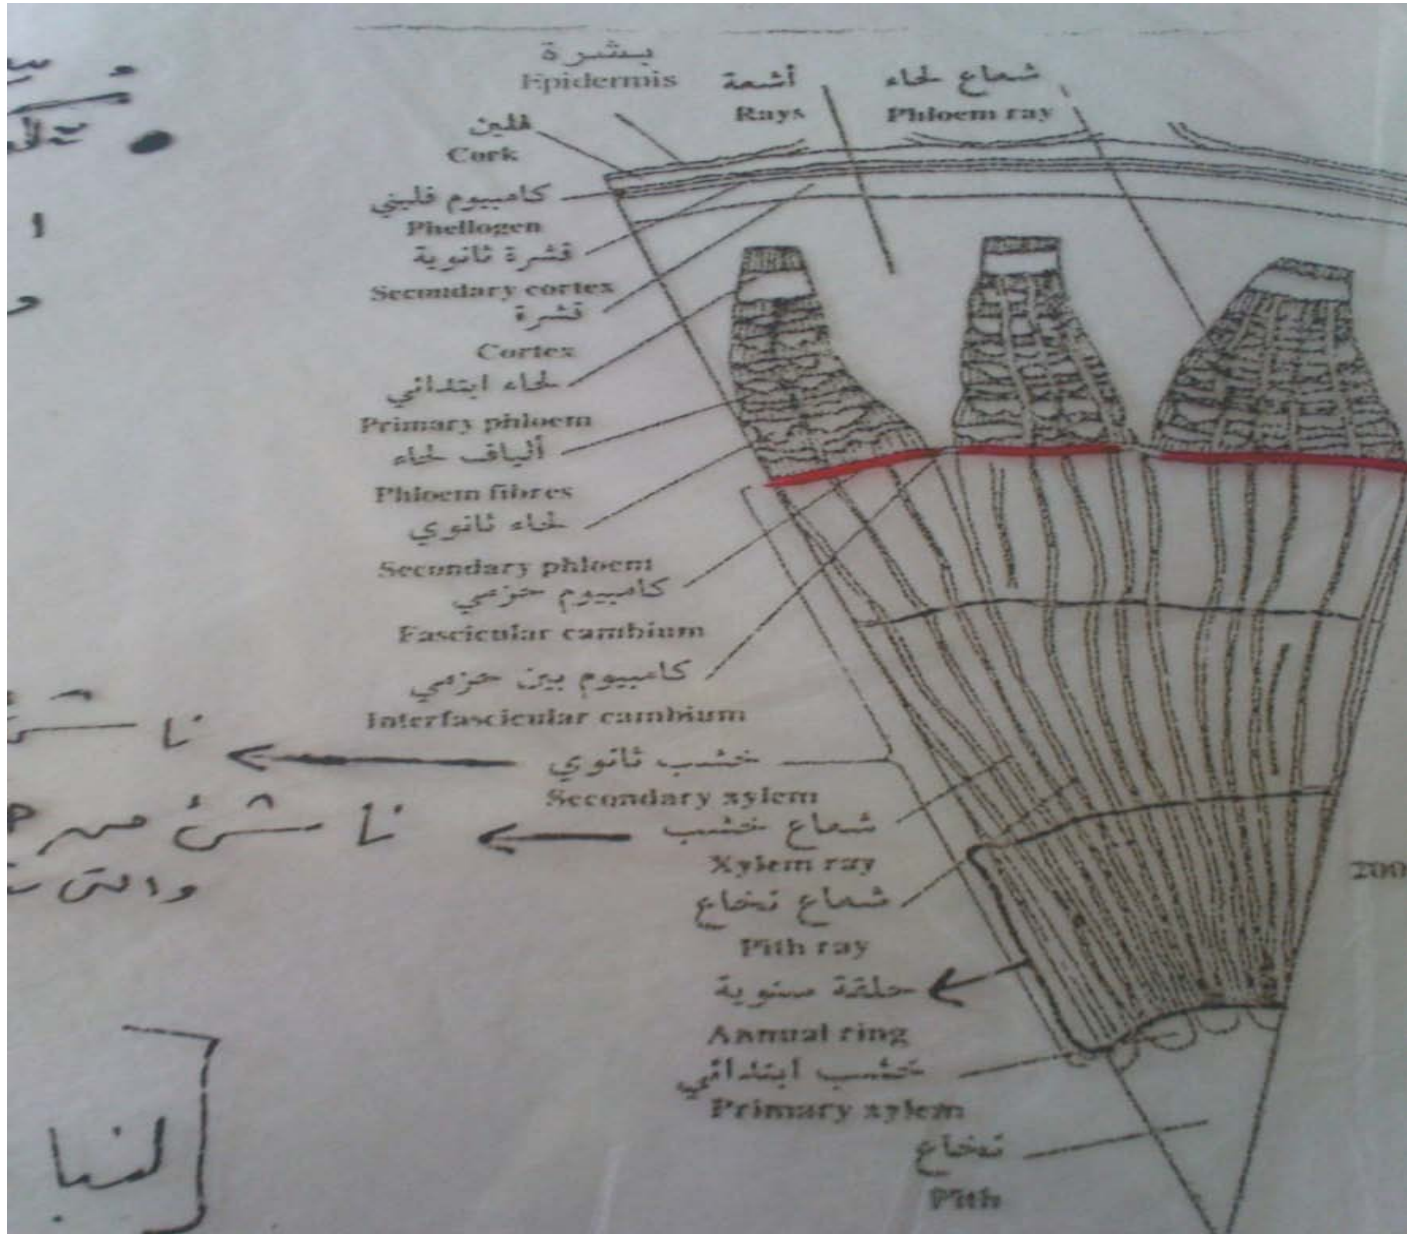 بشرة
Epidermis
أشعة
Rays
شعاع لحاء
Phloem ray
فلين
Cork
كامبيوم فليني
Phellogen
قشرة ثانوية
Secondary cortex
قشرة
Cortex
لحاء ابتدائي
Primary phloem
ألياف لحاء
Phloem fibres
لحاء ثانوي
Secondary phloem
كامبيوم حزمي
Fascicular cambium
كامبيوم بين حزمي
Interfascicular cambium
خشب ثانوي
Secondary xylem
شعاع خشب
Xylem ray
شعاع نخاع
Pith ray
حلقة سنوية
Annual ring
خشب ابتدائي
Primary xylem
نخاع
Pith
200
ناشئ